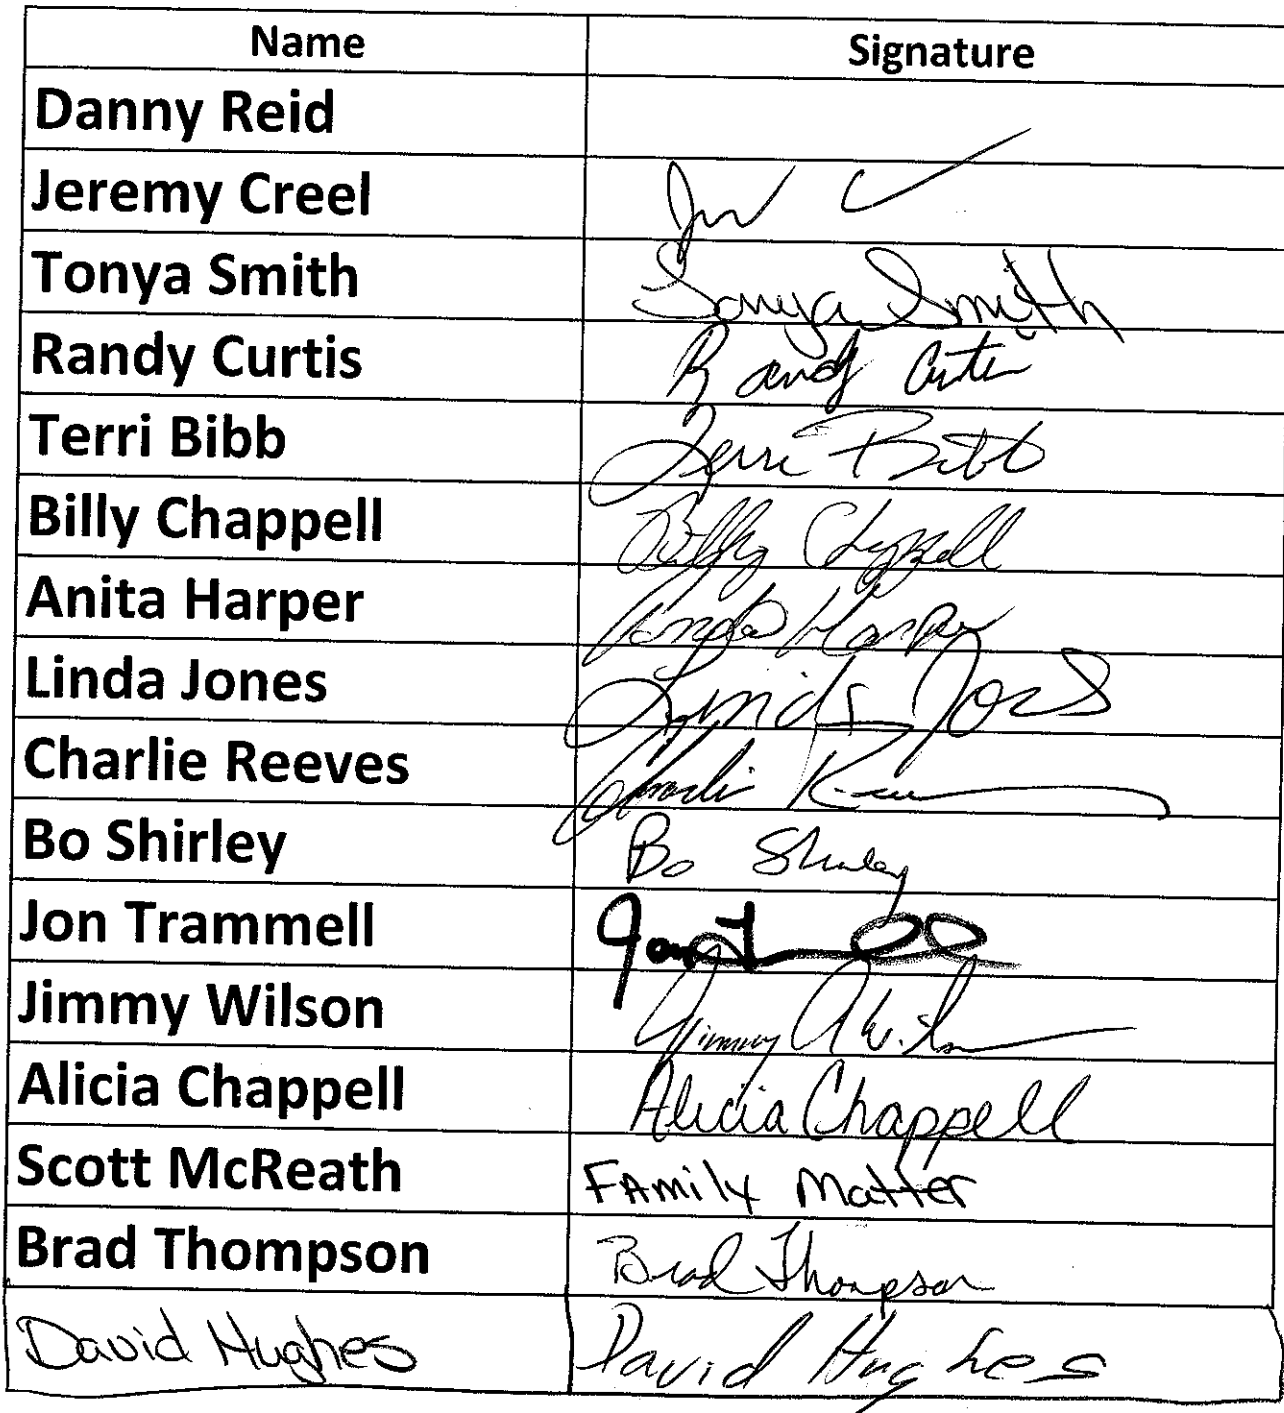 Name Signature
Danny Reid
Jeremy Creel
Tonya Smith Tonya Smith
Randy Curtis Randy
Terri Bibb Terri Bibb
Billy Chappell Billy Chappell
Anita Harper Harper
Linda Jones Linda
Charlie Reeves Charlie
Bo Shirley Bo Shirley
Jon Trammell Jon
Jimmy Wilson Jimmy A Wilson
Alicia Chappell Alicia Chappell
Scott McReath FAmily Matter
Brad Thompson Brad Thompson
David Hughes David Hughes